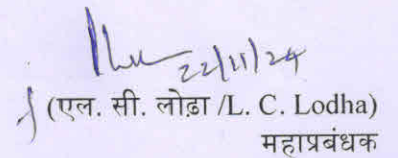 22/11/24
(एल. सी. लोढ़ा /L. C. Lodha)
महाप्रबंधक